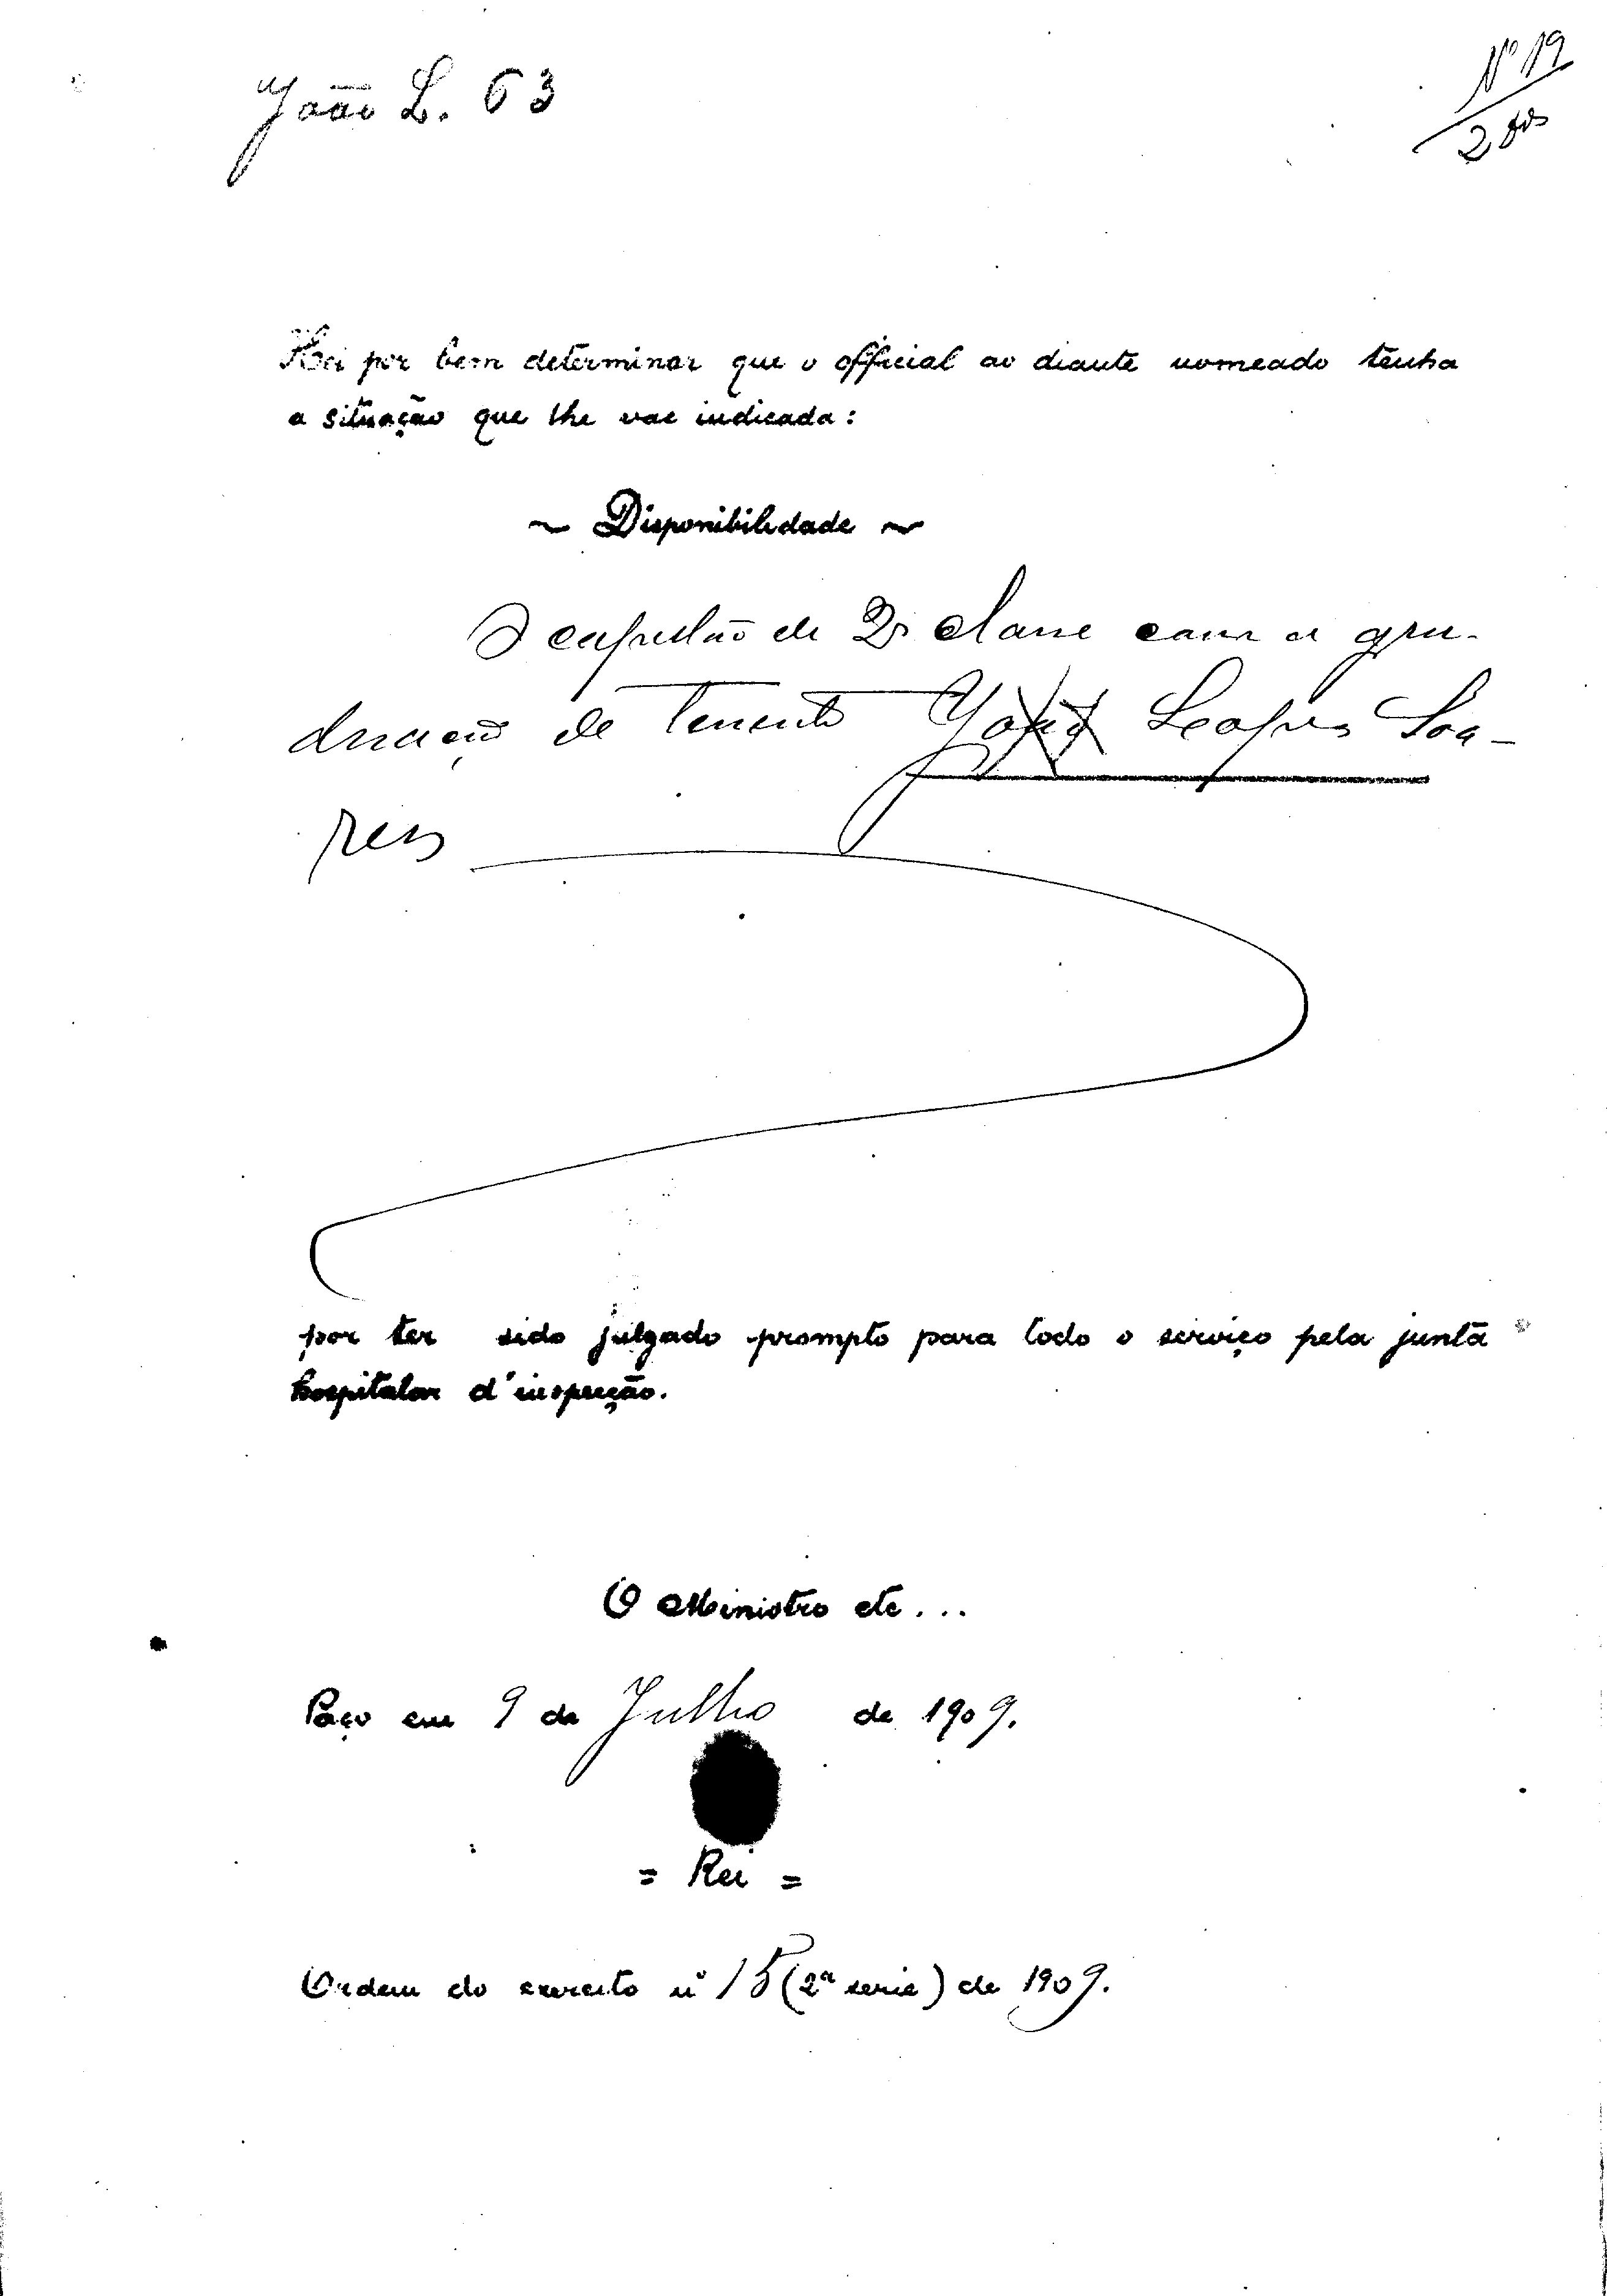 João L. 63
Nº 19
2
Hei por bem determinar que o official ao diante nomeado tenha
a situação que lhe vae indicada:
~ Disponibilidade ~
O capellão de 2ª classe com a gra-
duação de tenente Lopes Soa-
res
por ter sido julgado prompto para todo o serviço pela junta
hospitalar d'inspecção.
O Ministro etc...
Paço em 9 de Julho de 1909.
= Rei =
Ordem do exercito nº 15 (2ª serie) de 1909.